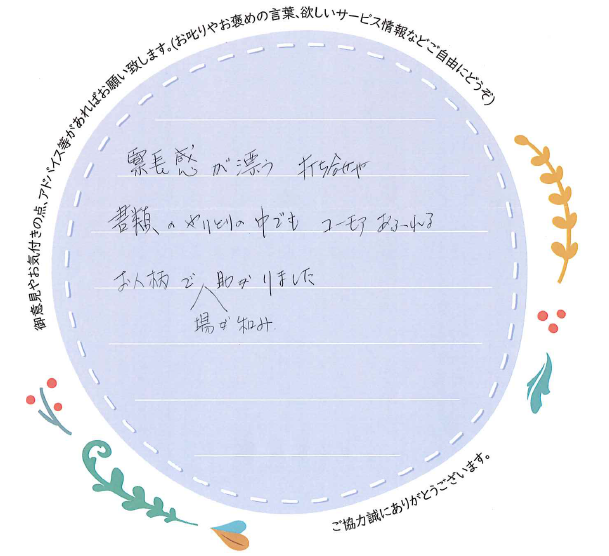 御意見やお気付きの点、アドバイス等があればお願い致します。(お叱りやお褒めの言葉、欲しいサービス情報などご自由にどうぞ)
緊張感が漂う 打ち合せや
書類のやりとりの中でも ユーモアあふれる
お人柄で助かりました
場が和み
ご協力誠にありがとうございます。